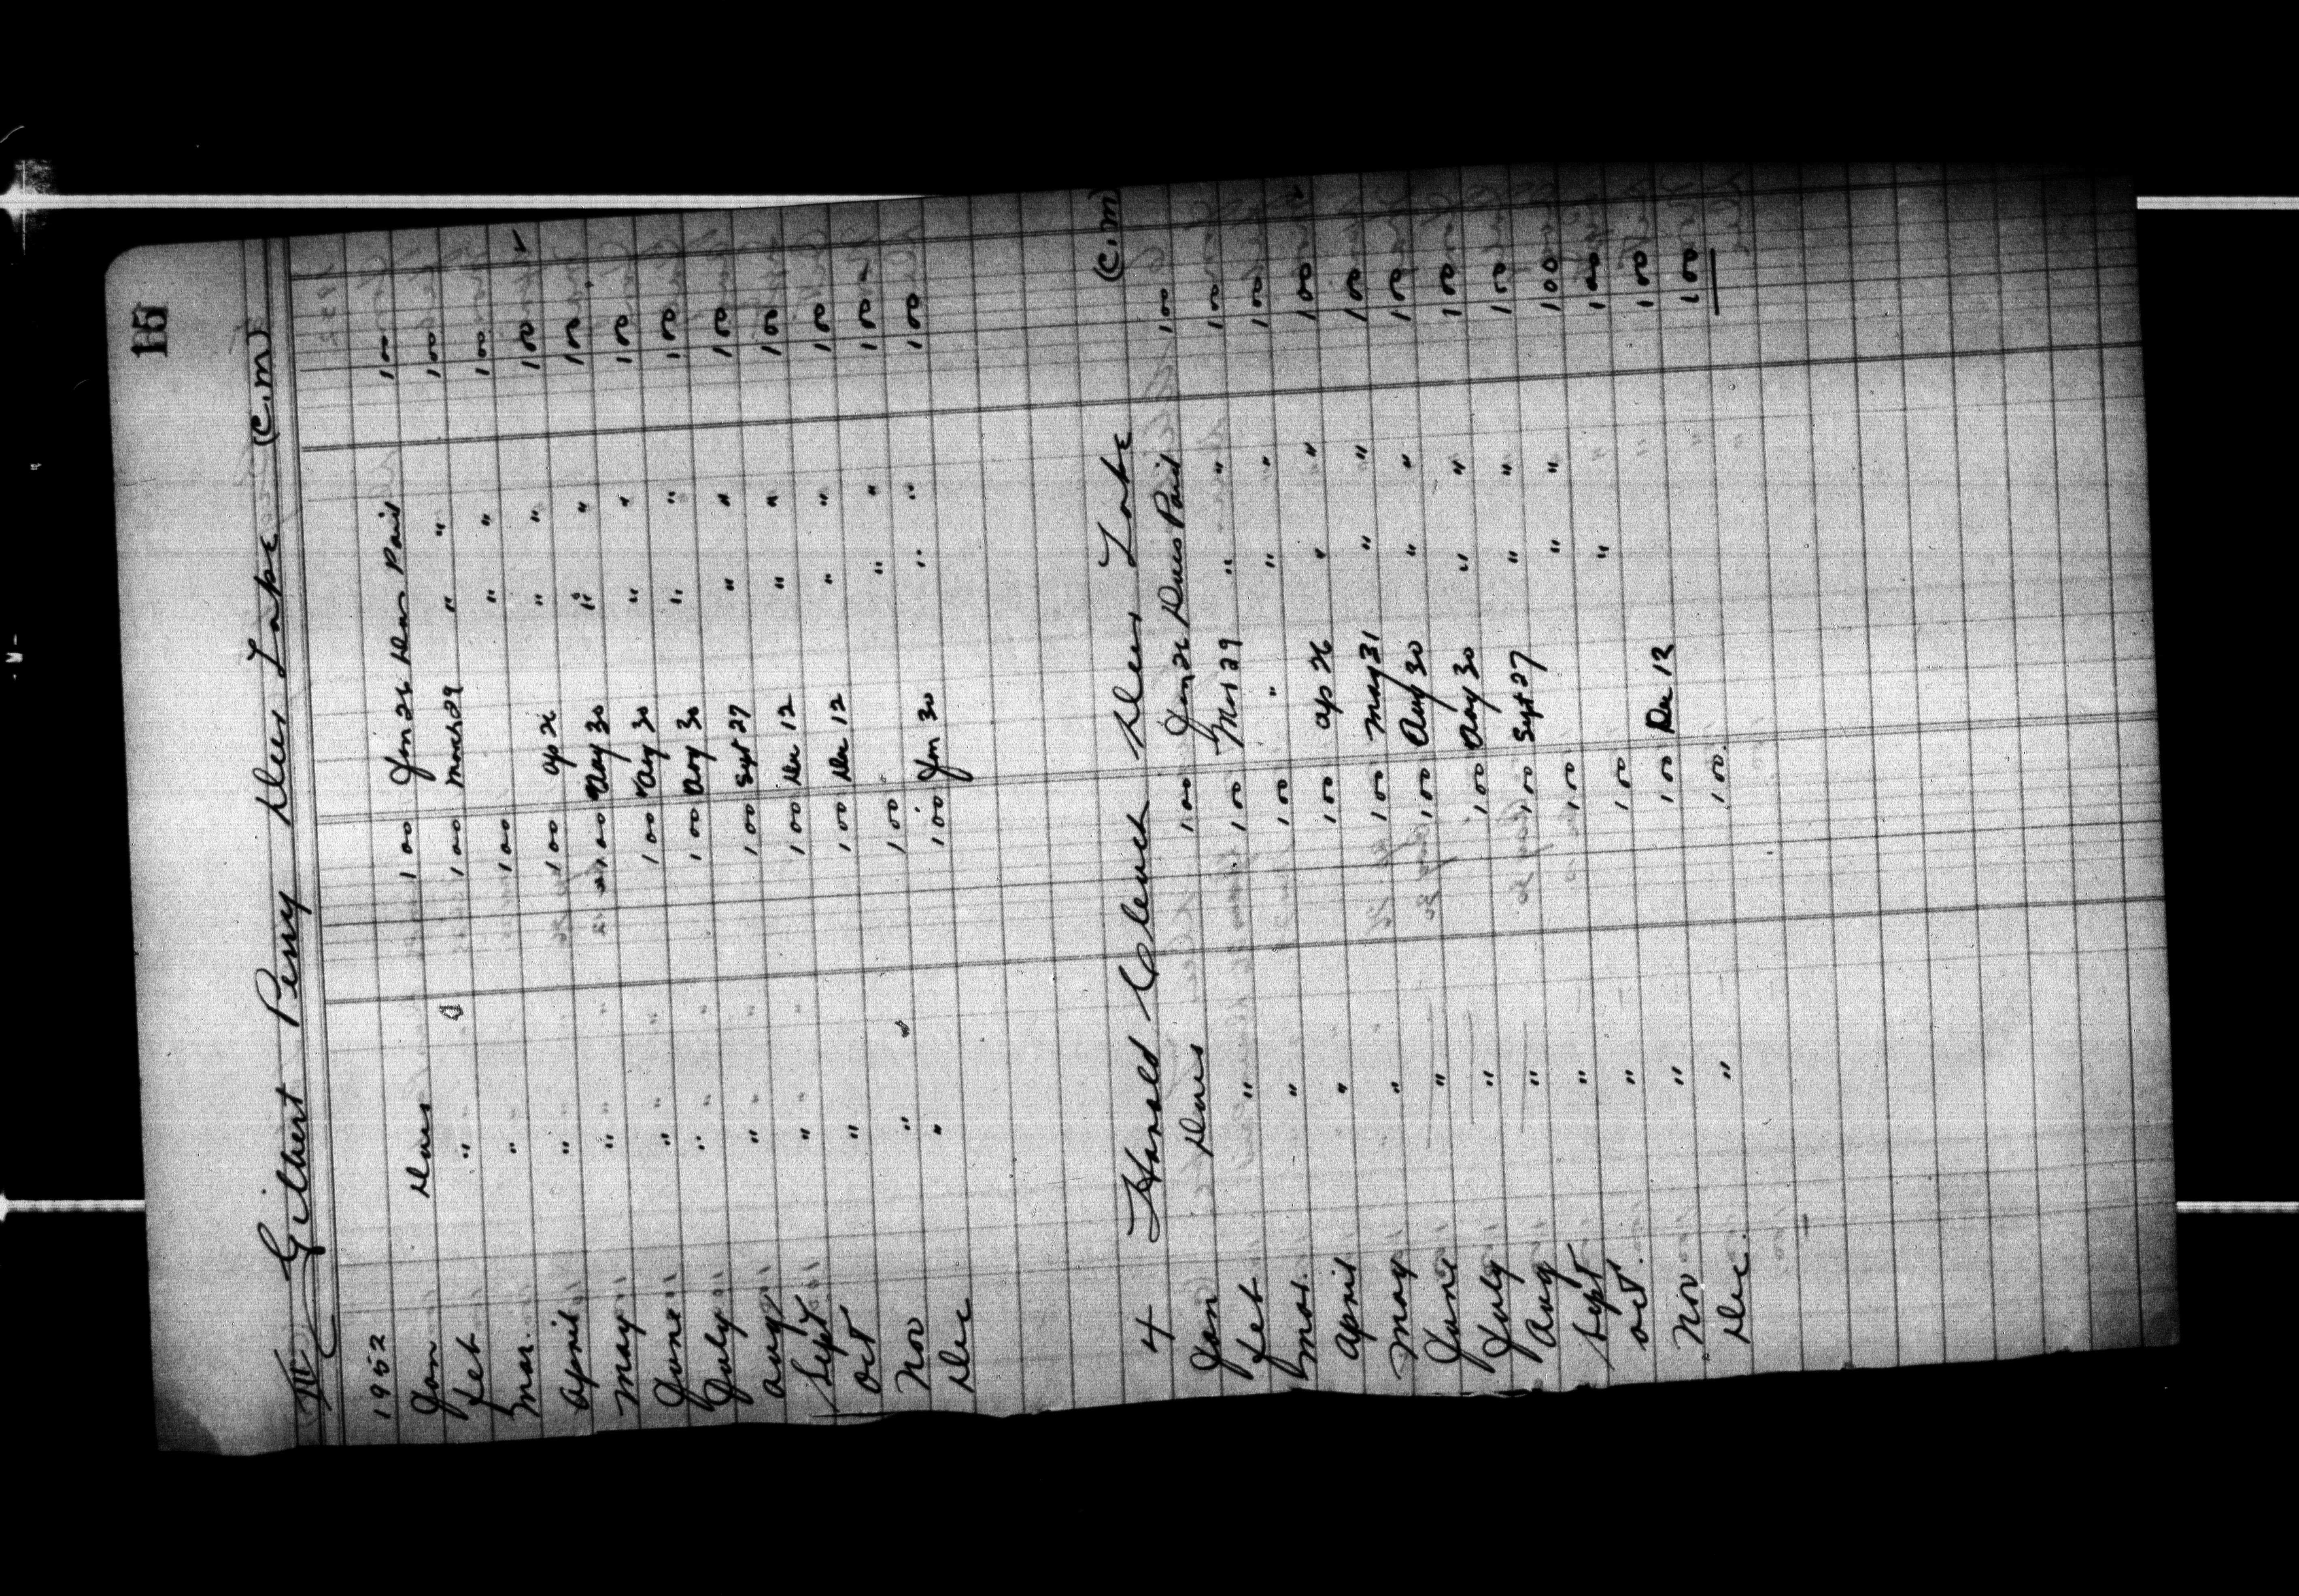 15
III Gilbert Perry Deer Lake (C.M)
1952
Jan Dues 1 00 Jan 26 Dues Paid 1 00
Feb " 1 00 March 29 " " 1 00
Mar. " 1 00 " " 1 00
April " 1 00 Ap 26 " " 1 00
May " 1 00 Aug 30 " " 1 00
June " 1 00 Aug 30 " " 1 00
July " 1 00 Aug 30 " " 1 00
Aug " 1 00 Sept 27 " " 1 00
Sept " 1 00 Dec 12 " " 1 00
Oct " 1 00 Dec 12 " " 1 00
Nov " 1 00 " " 1 00
Dec " 1 00 Jan 30 " " 1 00
4 Harold Clench Deer Lake (C.M)
Jan Dues 1 00 Jan 26 Dues Paid 1 00
Feb " 1 00 Mar 29 " " 1 00
Mar. " 1 00 " " " 1 00
April " 1 00 Ap 26 " " 1 00
May " 1 00 May 31 " " 1 00
June " 1 00 Aug 30 " " 1 00
July " 1 00 Aug 30 " " 1 00
Aug " 1 00 Sept 27 " " 1 00
Sept " 1 00 " " 1 00
Oct. " 1 00 " 1 00
Nov " 1 00 Dec 12 1 00
Dec. " 1 00 1 00